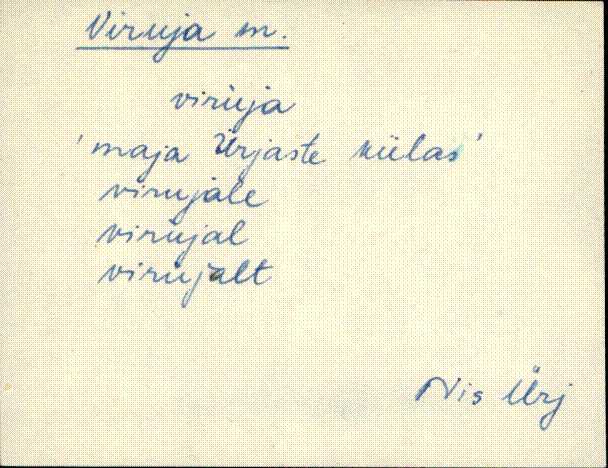 Viruja m.
viruja
'maja Ürjaste külas'
virujale
virujal
virujalt
Nis Ürj